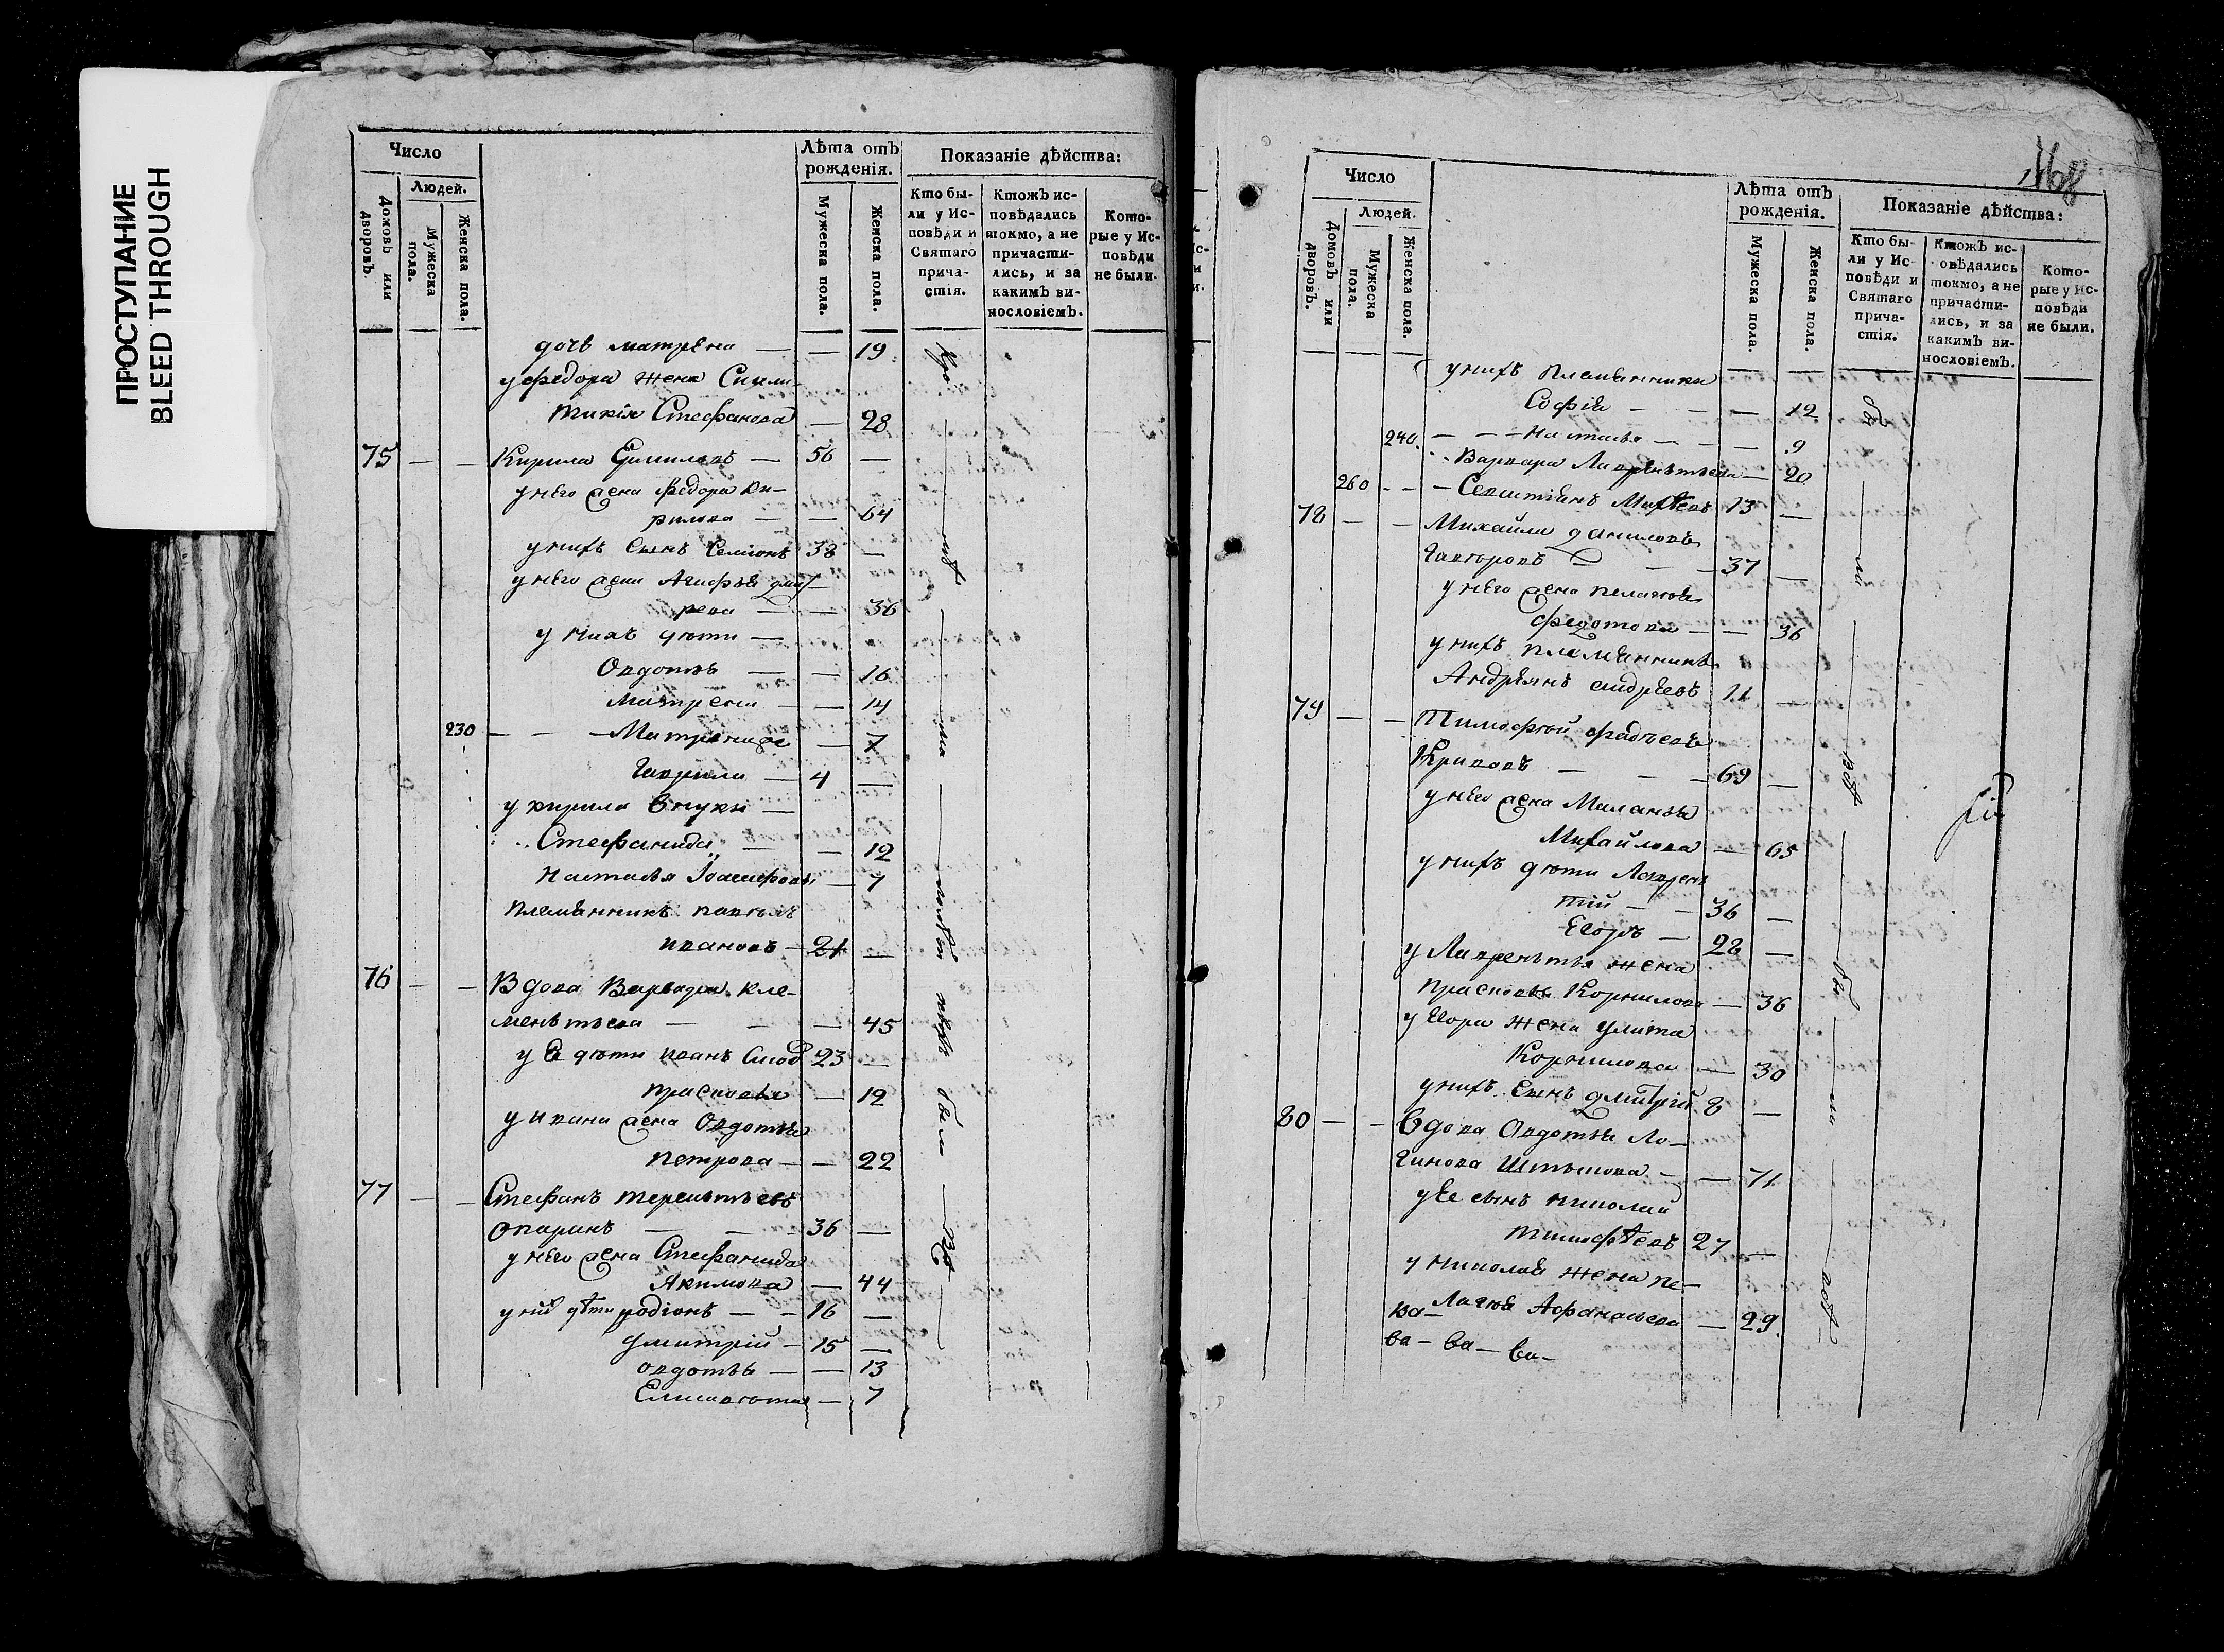 ПРОСТУПАНИЕ
BLEED THROUGH
Число
Людей.
Домовъ или дворовъ.
Мужеска пола.
Женска пола.
Лѣта отъ рожденія.
Мужеска пола.
Женска пола.
Показаніе дѣйства:
Кто бы-
ли у Ис-
повѣди и
Святаго
прича-
стія.
Ктожъ ис-
повѣдались
токмо, а не
причасти-
лись, и за
какимъ ви-
нословіемъ.
Кото-
рые у Ис-
повѣди
не были.
дочь матрена — — 19
у федора жена Сикли-
тикія Стефанова — 28
75 — — Кирила Емиловъ — 56 —
у него жена федора Ки-
рилова — — 64
у нихъ сынъ Семіонъ 38 —
у него жена Агафья дмит
рева — — 36
у нихъ дѣти —
Овдотья — — 16
Матрена — — 14
230 — — Матрена же — 7
Гаврила — 4 —
у кирила внуки —
Стефанида — — 12
Настасья — 7
племянникъ павелъ
ивановъ — 21 —
76 — — Вдова Варвара кле-
ментьева — — — 45
у ее дѣти иванъ 23 —
прасковья — 12
у ивана жена Овдотья
петрова — — 22
77 — — Стефанъ терентьевъ
опаринъ — — 36 —
у него жена Стефанида
Якимова — 44
у них дѣти родіонъ — — 16 —
дмитрій — 15 —
овдотья — — 13
Елисавета — 7
были
168
Число
Людей.
Домовъ или дворовъ.
Мужеска пола.
Женска пола.
Лѣта отъ рожденія.
Мужеска пола.
Женска пола.
Показаніе дѣйства:
Кто бы-
ли у Ис-
повѣди и
Святаго
прича-
стія.
Ктожъ ис-
овѣдались
токмо, а не
причасти-
лись, и за
какимъ ви-
нословіемъ.
Кото-
рые у Ис-
повѣди
не были.
у нихъ племянники
Софія — — — 12
240 — — Настасья — — — 9
Варвара Лаврентьева — 20
260 - - — Севастіянъ 13 —
78 — — Михайла даниловъ
— — 37 —
у него жена пелагея
федотова — — 36
у нихъ племянникъ
Андреянъ андреевъ 11
79 — — Тимофѣй фадѣевъ
Кривовъ — — — 69 —
у него жена Маланья
Михайлова — 65
у нихъ дѣти Лаврен
тій — — 36 —
Егоръ — 28 —
у Лаврентья жена
прасковья Корнилова — 36
у Егора жена улита
Корнилова — 30
у нихъ сынъ дмитрій 8 —
80 — — Вдова Овдотья Ло-
гинова — — 71
у ее сынъ николай
тимофѣевъ 27 —
у николая жена пе-
лагея Афанасьева — 29
ва — ва — ва —